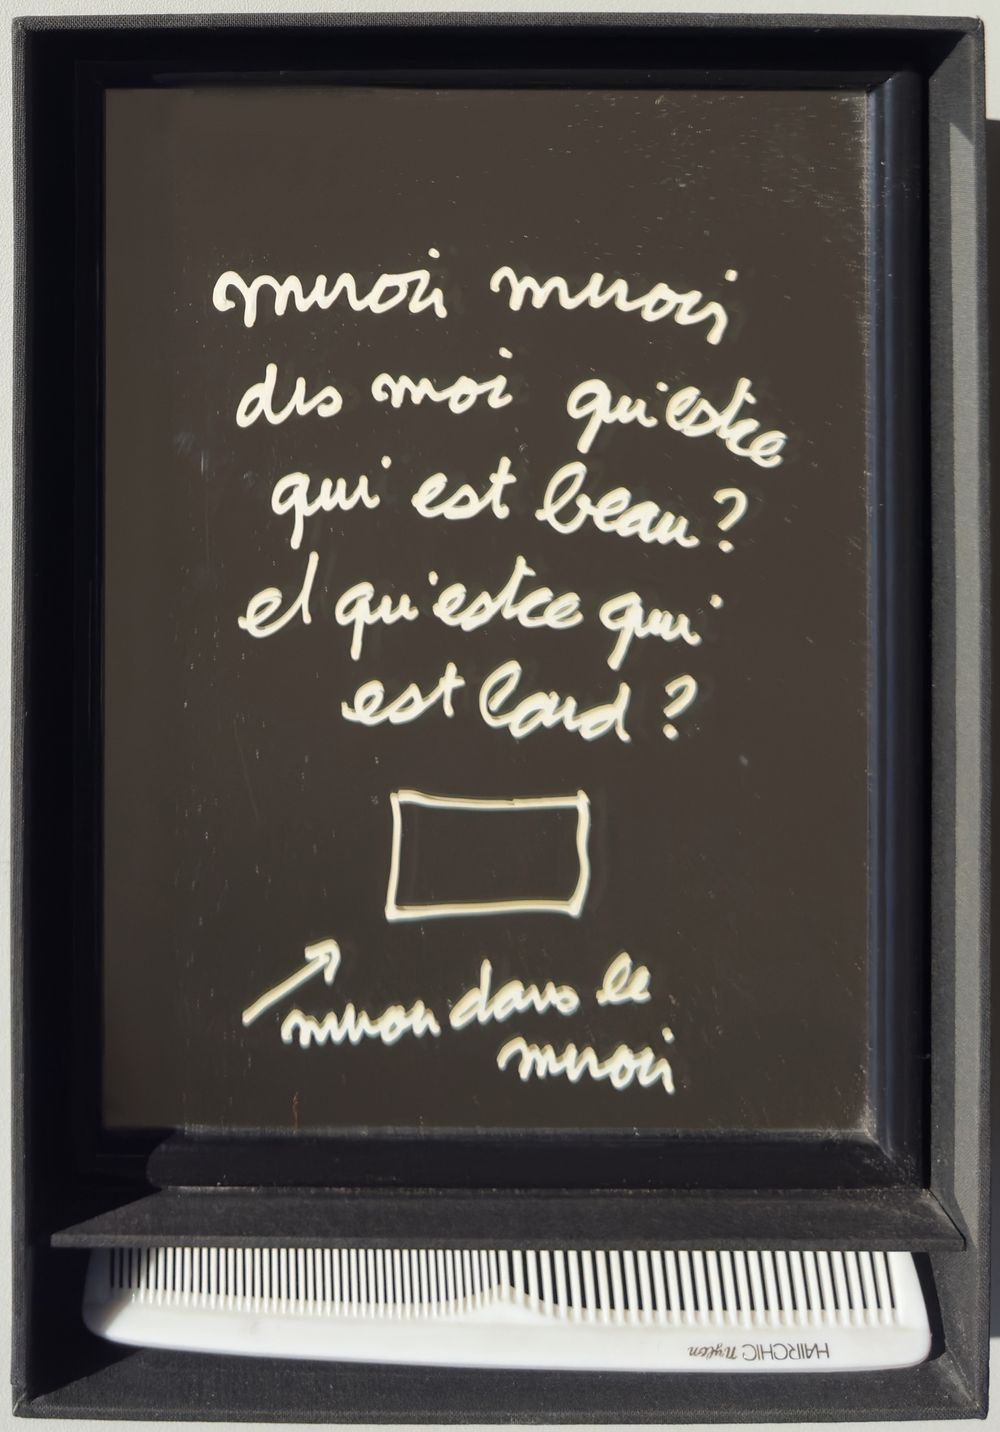 miroir miroir
dis moi qu'estce
qui est beau?
et qu'estce qui
est laid?
miroir dans le
miroir
HAIRCHIC Nylon